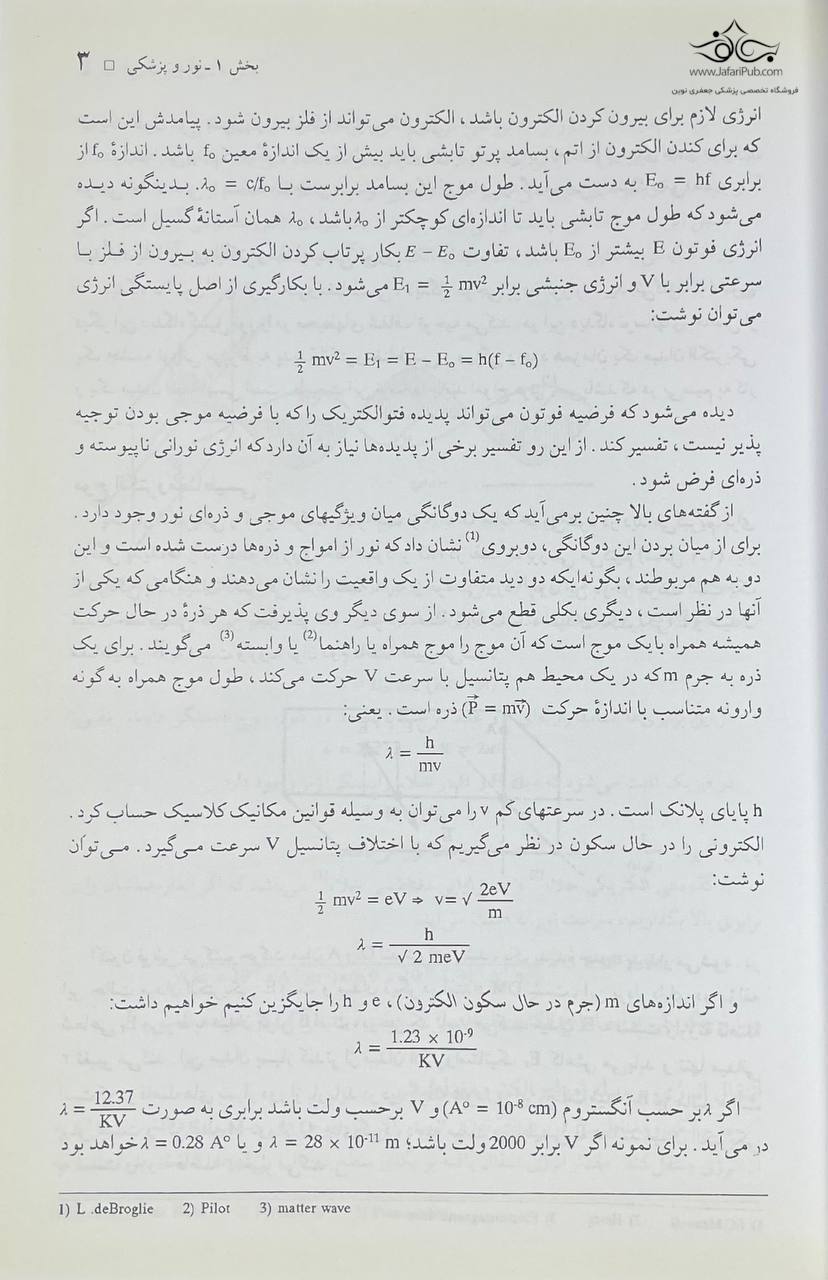 بخش ۱ ـ نور و پزشکی □ ۳
www.JafariPub.com
فروشگاه تخصصی پزشکی جعفری نوین
انرژی لازم برای بیرون کردن الکترون باشد، الکترون می‌تواند از فلز بیرون شود. پیامدش این است
که برای کندن الکترون از اتم، بسامد پرتو تابشی باید بیش از یک اندازهٔ معین f₀ باشد. اندازهٔ f₀ از
برابری E₀ = hf به دست می‌آید. طول موج این بسامد برابرست با λ₀ = c/f₀. بدینگونه دیده
می‌شود که طول موج تابشی باید تا اندازه‌ای کوچکتر از λ₀ باشد، λ₀ همان آستانهٔ گسیل است. اگر
انرژی فوتون E بیشتر از E₀ باشد، تفاوت E − E₀ بکار پرتاب کردن الکترون به بیرون از فلز با
سرعتی برابر با V و انرژی جنبشی برابر E₁ = ½ mv² می‌شود. با بکارگیری از اصل پایستگی انرژی
می‌توان نوشت:
½ mv² = E₁ = E − E₀ = h(f − f₀)
دیده می‌شود که فرضیه فوتون می‌تواند پدیده فتوالکتریک را که با فرضیه موجی بودن توجیه
پذیر نیست، تفسیر کند. از این رو تفسیر برخی از پدیده‌ها نیاز به آن دارد که انرژی نورانی ناپیوسته و
ذره‌ای فرض شود.
از گفته‌های بالا چنین برمی‌آید که یک دوگانگی میان ویژگیهای موجی و ذره‌ای نور وجود دارد.
برای از میان بردن این دوگانگی، دوبروی(1) نشان داد که نور از امواج و ذره‌ها درست شده است و این
دو به هم مربوطند، بگونه‌ایکه دو دید متفاوت از یک واقعیت را نشان می‌دهند و هنگامی که یکی از
آنها در نظر است، دیگری بکلی قطع می‌شود. از سوی دیگر وی پذیرفت که هر ذرهٔ در حال حرکت
همیشه همراه با یک موج است که آن موج را موج همراه یا راهنما(2) یا وابسته(3) می‌گویند. برای یک
ذره به جرم m که در یک محیط هم پتانسیل با سرعت V حرکت می‌کند، طول موج همراه به گونه
وارونه متناسب با اندازهٔ حرکت (P⃗ = mv⃗) ذره است. یعنی:
λ = h / mv
h پایای پلانک است. در سرعتهای کم v را می‌توان به وسیله قوانین مکانیک کلاسیک حساب کرد.
الکترونی را در حال سکون در نظر می‌گیریم که با اختلاف پتانسیل V سرعت می‌گیرد. می‌توان
نوشت:
½ mv² = eV ⇒ v= √ 2eV / m
λ = h / √ 2 meV
و اگر اندازه‌های m (جرم در حال سکون الکترون)، e و h را جایگزین کنیم خواهیم داشت:
λ = 1.23 × 10⁻⁹ / KV
اگر λ بر حسب آنگستروم (A° = 10⁻⁸ cm) و V برحسب ولت باشد برابری به صورت λ = 12.37 / KV
در می‌آید. برای نمونه اگر V برابر 2000 ولت باشد؛ λ = 28 × 10⁻¹¹ m و یا λ = 0.28 A° خواهد بود
1) L .deBroglie 2) Pilot 3) matter wave